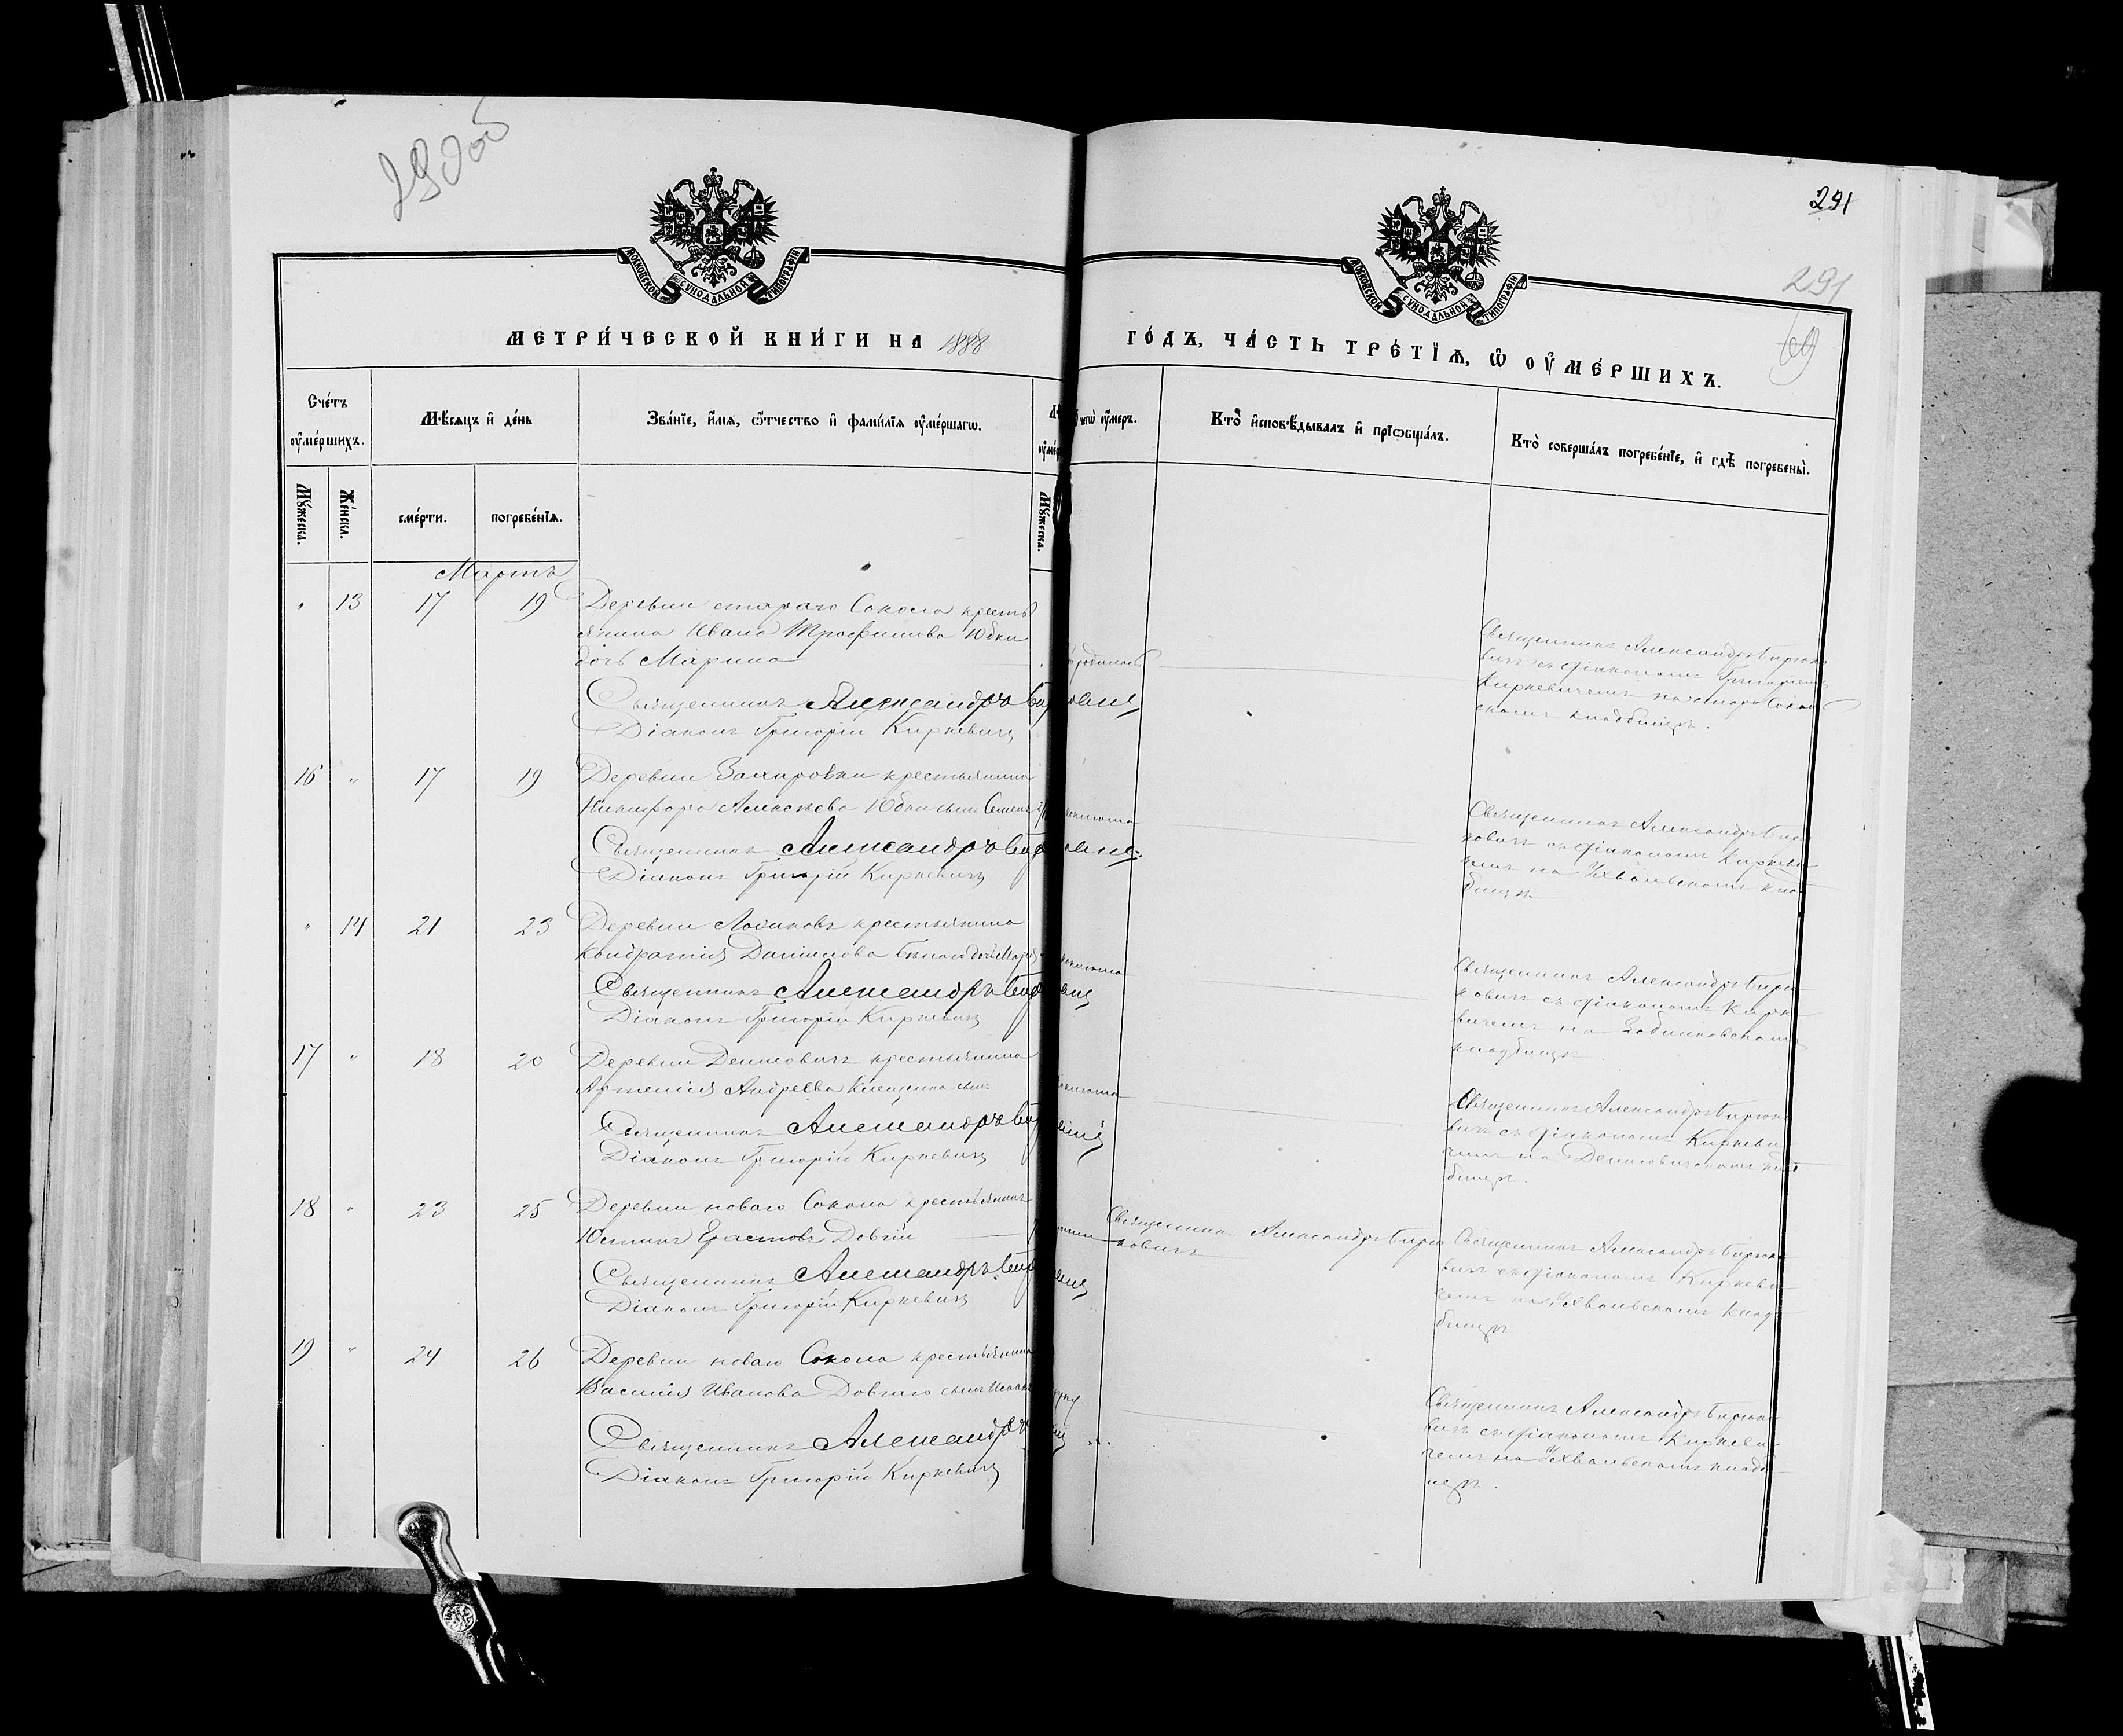 290об
291
291
69
МОСКОВСКОЙ СѴНОДАЛЬНОЙ ТИПОГРАФІИ
МОСКОВСКОЙ СѴНОДАЛЬНОЙ ТИПОГРАФІИ
МЕТРИ́ЧЕСКОЙ КНИ́ГИ НА 1888
ГО́ДЪ, ЧА́СТЬ ТРЕ́ТІѦ, Ѽ ОУ҆МЕ́РШИХЪ.
Сче́тъ оу҆ме́ршихъ.
Мѣ́сяцъ и҆ де́нь
Зва́нїе, и҆́мѧ, ѻ҆́тчество и҆ фами́лїѧ оу҆ме́ршагѡ.
чегѡ̀ оу҆́меръ.
Кто̀ и҆сповѣ́дывалъ и҆ прїѡбща́лъ.
Кто̀ соверша́лъ погребе́нїе, и҆ гдѣ̀ погребены̀.
Мꙋ́жеска.
Же́нска.
сме́рти.
погребе́нїѧ.
Мꙋ́жеска.
Мартъ
" 13 17 19 Деревни стараго Сокола кресть
янина Ивана Трофимова Юбки
дочь Марина
Священникъ Александръ
Діаконъ Григорій Киркевичъ
Священникъ Александръ Бирюко
вичъ съ діакономъ Григоріемъ
Киркевичемъ на старо Соколь
скомъ кладбищѣ.
16 " 17 19 Деревни Захаровки крестьянина
Никифора Алексѣева Юбки сынъ Семенъ
Священникъ Александръ
Діаконъ Григорій Киркевичъ
Священникъ Александръ Бирю
ковичъ съ діакономъ Киркеви
чемъ на Ухвальскомъ клад
бищѣ
" 14 21 23 Деревни крестьянина
Кондратія Данилова дочь
Священникъ Александръ
Діаконъ Григорій Киркевичъ
Священникъ Александръ Бирю
ковичъ съ діакономъ Кирке
вичемъ на
кладбищѣ.
17 " 18 20 Деревни Денисовичъ крестьянина
Артемія Андреева Клещенка сынъ
Священникъ Александръ
Діаконъ Григорій Киркевичъ
Священникъ Александръ Бирюко
вичъ съ діакономъ Киркеви
чемъ на Денисовичскомъ клад
бищѣ.
18 " 23 25 Деревни новаго Сокола крестьянинъ
Юстинъ Ерастовъ Довгій
Священникъ Александръ
Діаконъ Григорій Киркевичъ
Священникъ Александръ Бирю
ковичъ
Священникъ Александръ Бирюко
вичъ съ діакономъ Киркеви
чемъ на Ухвальскомъ клад
бищѣ
19 " 24 26 Деревни новаго Сокола крестьянина
Василія Иванова Довгаго сынъ
Священникъ Александръ
Діаконъ Григорій Киркевичъ
Священникъ Александръ Бирюко
вичъ съ діакономъ Киркеви
чемъ на Ухвальскомъ кладби
щѣ.